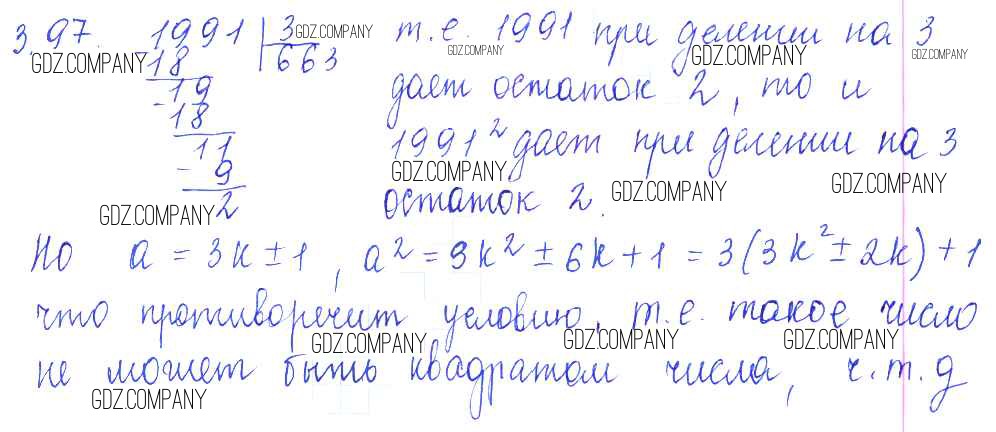 3.97. 1991 | 3 GDZ.COMPANY т.е. 1991 при делении на 3
GDZ.COMPANY - 18 663 GDZ.COMPANY GDZ.COMPANY GDZ.COMPANY
19 дает остаток 2, то и
- 18
11 1991² дает при делении на 3
- 9 GDZ.COMPANY GDZ.COMPANY
GDZ.COMPANY 2 остаток 2. GDZ.COMPANY
Но a = 3k ± 1, a² = 9k² ± 6k + 1 = 3(3k² ± 2k) + 1
что противоречит условию, т.е. такое число
GDZ.COMPANY GDZ.COMPANY GDZ.COMPANY
не может быть квадратом числа, ч.т.д
GDZ.COMPANY GDZ.COMPANY